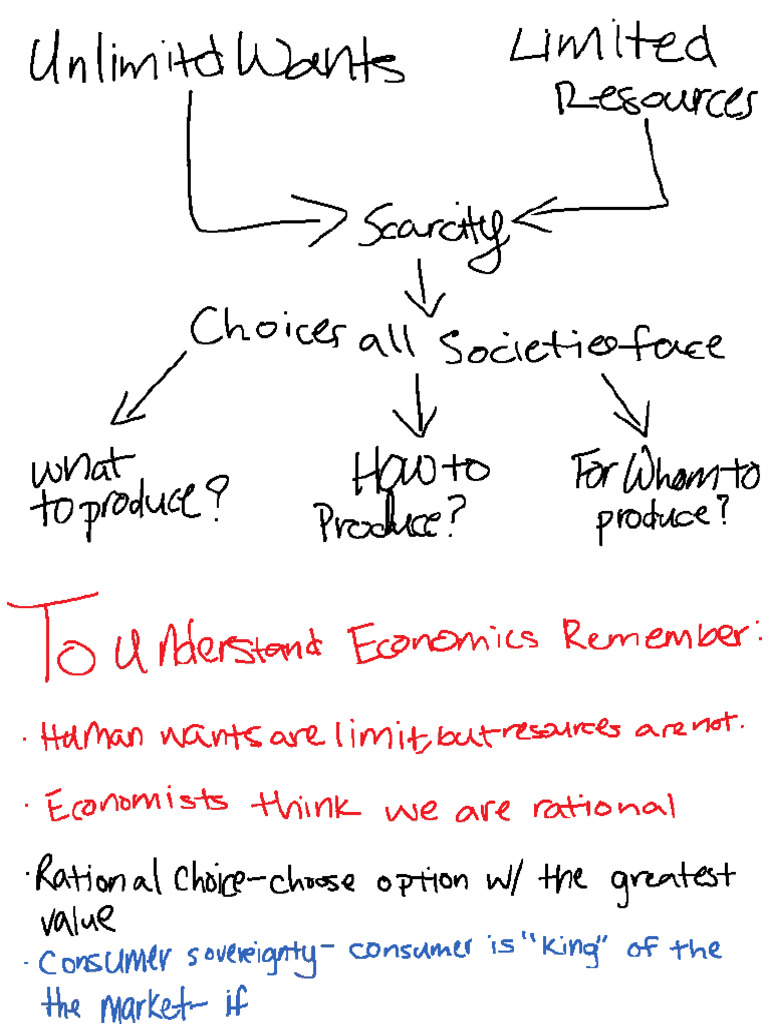 Unlimitd Wants
Limited
Resources
Scarcity
Choices all Societies face
what
to produce?
How to
Produce?
For Whom to
produce?
To Understand Economics Remember:
· Human wants are limit, but resources are not.
· Economists think we are rational
· Rational Choice - choose option w/ the greatest
value
· Consumer sovereignty - consumer is "king" of the
the market - if